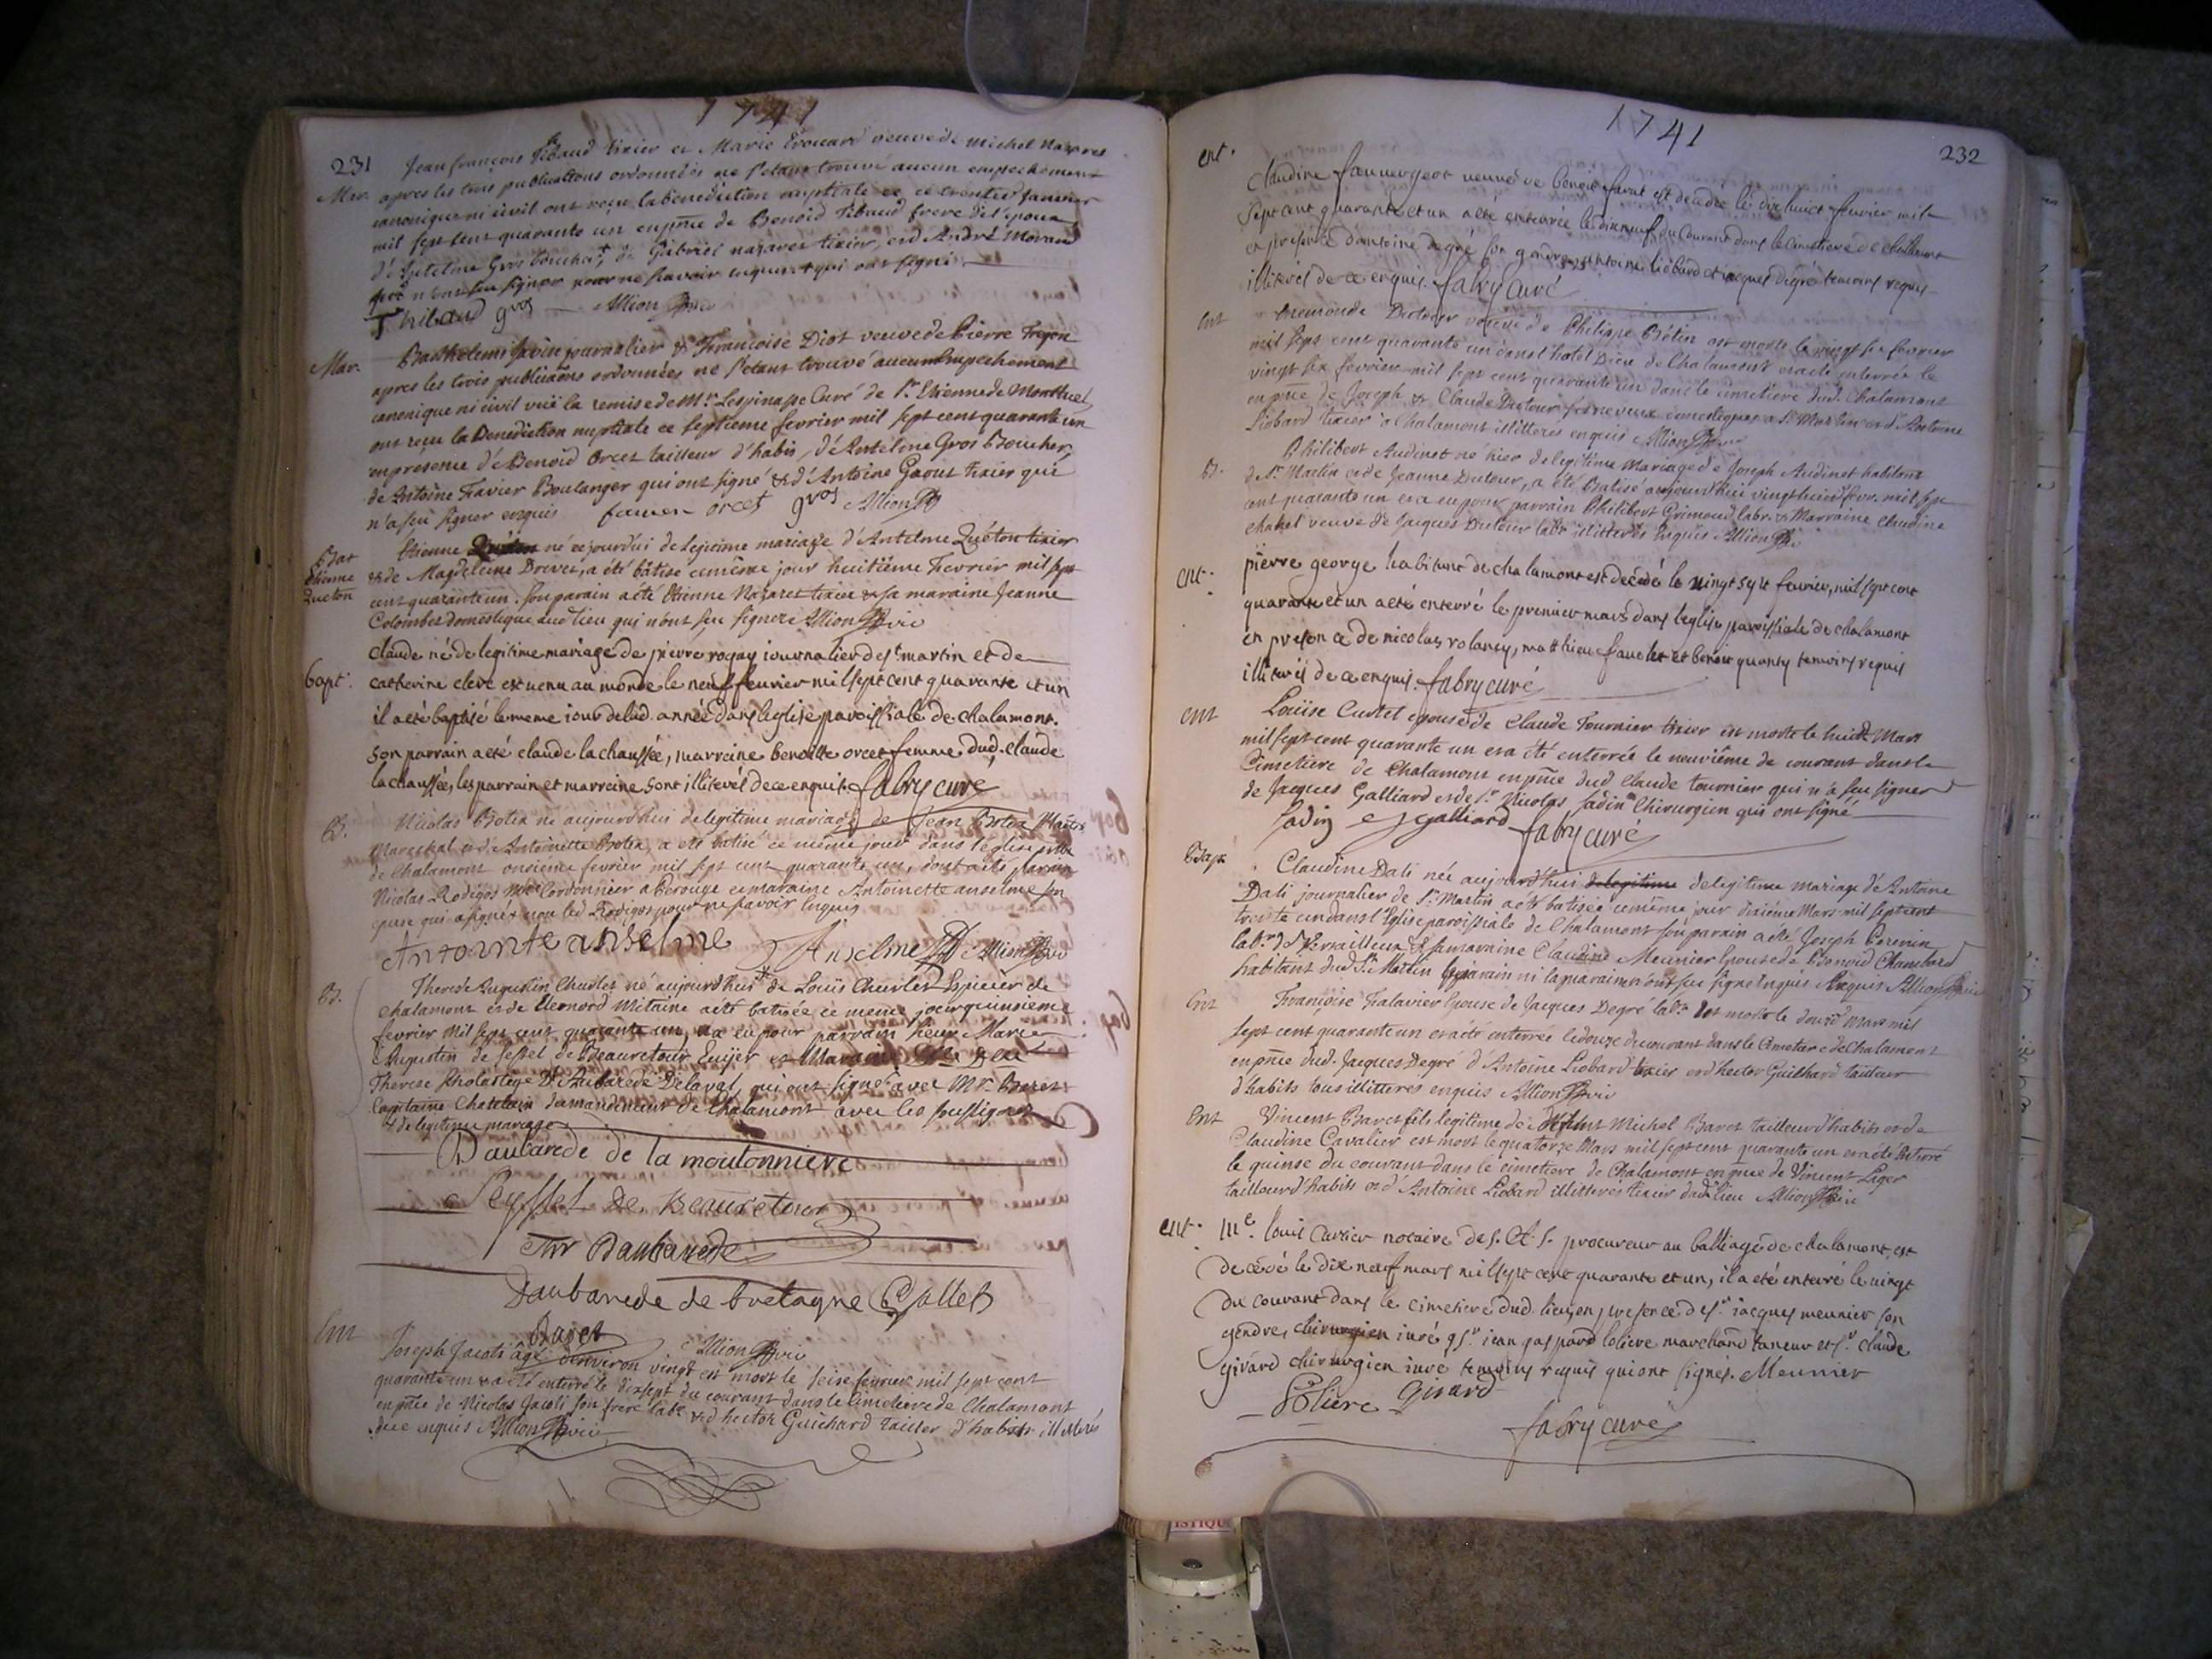 1741
231
Jean françois Tibaud tixier et Marie Evouard veuve de Michel
Mar. apres les trois publications ordonnées ne s'etant trouvé aucun empechement
canonique ni civil ont reçu la benediction nuptiale ce janvier
mil sept cent quarante un en pñce de Benoid Tibaud frere de l'epoux
d'Antelme Gros boucher, de Gabriel nazaret tixier, et d'André Morand
signer pour ne sçavoir enquis qui ont signé
Thibaud gros Allion
Mar. Barthelemi journalier & Francoise Diot veuve de Pierre
apres les trois publicaõns ordonnées ne s'etant trouvé aucun Empechement
canonique ni civil vüe la remise de Mr. Lespinasse Curé de St. Etienne de Montluel
ont reçu la Benediction nuptiale ce septieme fevrier mil sept cent quarante un
en présence dé Benoid Orcet tailleur d'habis, d'Antelme Gros Boucher,
de Antoine Favier Boulanger qui ont signé & d'Antoine tixier qui
n'a sçu signer enquis favier orcet gros Allion
Bat
Etienne
Queton
Etienne né ce jourdui de legitime mariage d'Antelme Quéton tixier
& de Magdeleine Drevet, a été bâtisé ce même jour huitiême Fevrier mil sept
cent quarante un. son parain a été Etienne Nazaret tixier & sa maraine Jeanne
Colombet domestique dud lieu qui n'ont sçu signer Allion
claude né de legitime mariage de pierre rogay journalier de st martin et de
bapt. catherine cleve est venu au monde le neuf feuvrier mil sept cent quarante et un
il a eté baptisé le meme jour de lad. année dans leglise paroissiale de chalamont.
son parrain a eté claude la chaussée, marraine benoitte orcet femme dud. claude
la chaussée, les parrain et marreine sont illiterés de ce enquis. fabry curé
B. Nicolas Botex né aujourd'hui de legitime mariage de Jean Botex Maître
Marechal et de Antoinette Botex, a eté batisé ce même jour dans l'église
de Chalamont onsiéme fevrier mil sept cent quarante un, dont a eté parain
Nicolas Rodigos Cordonnier a Perouge et maraine Antoinette anselme son
epuse qui a signé & non led Rodigos pour ne savoir Enquis
Antointe anselme Anselme Allion
B. Therese Augustin Charlet né aujourd'hui + de Louis Charlet Espicier de
Chalamont et de Eleonord Mitaine a eté batisée ce meme jour quinsieme
fevrier mil sept cent quarante un, & a eu pour parrain sieur Marie
Augustin de sessel de Beauretour Euijer et Maraine
Therese scholastege D'Aubarede Delaval, qui ont signé avec Mr. Baret
Capitaine Chatelain du mandement de Chalamont avec les soussignés
+ de legitime mariage
Daubarede de la moutonniere
Seyssel De Beauretour
Daubarede
Daubarede de bretagne Collet
Baret Allion
Ent Joseph Jacoti âgé d'environ vingt est mort le seise fevrier mil sept cent
quarante un & a eté enterré le dixsept du courant dans le Cimetiere de Chalamont
en pñce de Nicolas Jacoti son frere labr & d'hector Guichard tailler d'habits illiterés
enquis Allion
1741
232
ent. Claudine fauvergeot veuve de benoit est decedée le dix huict feuvrier mil
sept cent quarante et un a eté enterrée le dixneuf du courant dans le cimetiere de chalamont
en presence dantoine degré son gendre, antoine liobard et jacques degré temoins requis
illiterés de ce enquis. fabry curé
Ent Dutour veuve de Philippe Botin est morte le vingt six fevrier
mil sept cent quarante un dans l'hotel Dieu de Chalamont et a eté enterrée le
vingt six fevrier mil sept cent quarante un dans le cimetiere dud. Chalamont
en pñce de Joseph & Claude Dutour ses neveux domestiques a St. Martin et d'Antoine
Liobard tixier a Chalamont illitterés enquis Allion
B. Philibert Audinet né hier de legitime Mariage de Joseph Audinet habitant
de St. Martin et de Jeanne Dutour, a été Batisé aujourd'hui vingthuit fevr. mil sept
cent quarante un et a eu pour parrain Philibert Grimoud labr. & Marraine Claudine
chanel veuve de Jaques Dutour labr illitterés Enquis Allion
ent. pierre george habitant de chalamont est decedé le vingt sept feuvrier, mil sept cent
quarante et un a eté enterré le premier mars dans leglise paroissiale de chalamont
en presence de nicolas rolancy, matthieu fauclet et benoit quanty temoins requis
illiterés de ce enquis. fabry curé
ent Loüise Curtet epouse de Claude Tournier tixier est morte le huict Mars
mil sept cent quarante un et a eté enterrée le neuviême de courant dans le
Cimetiere de Chalamont en pñce dud Claude tournier qui n'a sçu signer
de Jacques Galliard et de sr. Nicolas Jadin Chirurgien qui ont signé
Jadin J galliard fabry curé
Bap. Claudine Dali née aujourd'hui de legitime mariage d'Antoine
Dali journalier de St. Martin a été batisée ce même jour dixiême Mars mil sept cent
trente un dans l'Eglise paroissiale de Chalamont son parain a été Joseph
labr. de Versailleux & sa maraine Claudine Meunier Epouse de Benoid Chambard
habitant dud St. Martin le parain ni la maraine n'ont sçu signe Enquis Allion
Ent Françoise Epouse de Jacques Degré labr. est morte le douze Mars mil
sept cent quarante un et a eté enterrée ledouze du courant dans le Cimetiere de Chalamont
en pñce dud. Jacques Degré d'Antoine Liobard tixier et d'hector Guichard tailleur
d'habits tous illitteres enquis Allion
Ent Vincent Baret fils legitime de Michel Baret tailleur d'habits et de
Claudine Cavalier est mort le quatorze Mars mil sept cent quarante un et a été Enterré
le quinse du courant dans le cimetiere de Chalamont en pñce de Vincent Liger
tailleur d'habits et d'Antoine Liobard illitterés tixier dud lieu Allion
ent. Me. louis Carrier notaire de S. A. S. procureur au balliage de chalamont, est
decédé le dix neuf mars mil sept cent quarante et un, il a eté enterré le vingt
du courant dans le cimetiere dud. lieu, en presence de sr. jacques meunier son
gendre, chirurgien juré, sr jean gaspard loliere marchand taneur et sr. claude
girard chirurgien juré temoins requis qui ont signés. Meunier
Loliere Girard
fabry curé
ISTIQU